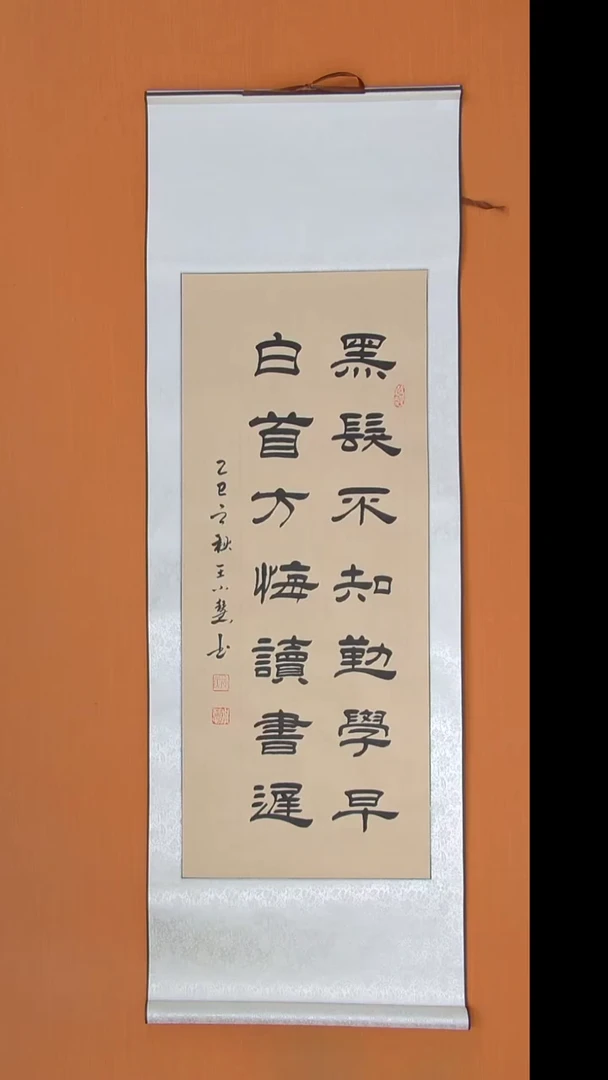 黑髮不知勤學早
白首方悔讀書遲
乙巳之秋王小慧書